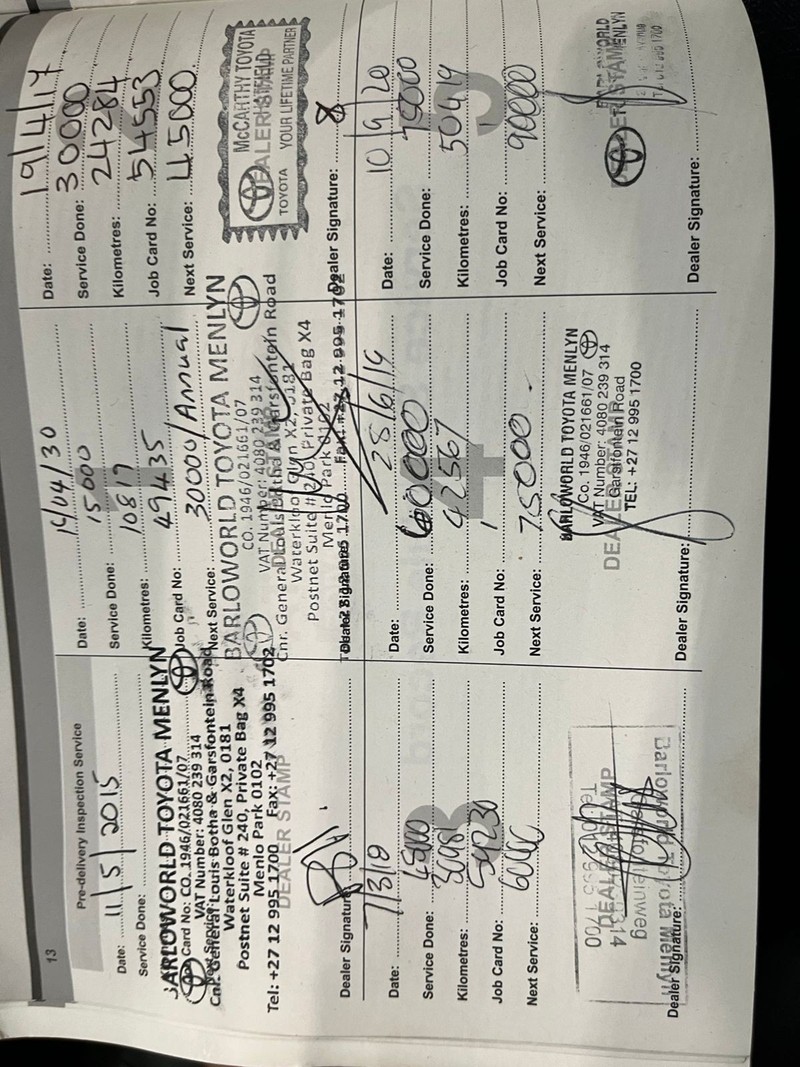 13
Pre-delivery Inspection Service
Date: 11/5/2015
Service Done:
BARLOWORLD TOYOTA MENLYN
Card No: CO. 1946/021661/07
VAT Number: 4080 239 314
Cnr. General Louis Botha & Garsfontein Road
Waterkloof Glen X2, 0181
Postnet Suite # 240, Private Bag X4
Menlo Park 0102
Tel: +27 12 995 1700 Fax: +27 12 995 1702
DEALER STAMP
Dealer Signature:
Date:
Service Done: 15000
Kilometres: 10819
Job Card No: 49435
Next Service: 30000/Annual
BARLOWORLD TOYOTA MENLYN
CO. 1946/021661/07
VAT Number: 4080 239 314
Cnr. General Louis Botha & Garsfontein Road
Waterkloof Glen X2, 0181
Postnet Suite # 240, Private Bag X4
Menlo Park 0102
Fax: +27 12 995 1702
Dealer Signature:
Date: 19/4/17
Service Done: 30000
Kilometres: 24284
Job Card No: 54553
Next Service: 45000
McCARTHY TOYOTA
DEALER STAMP
TOYOTA YOUR LIFETIME PARTNER
Dealer Signature:
3
Date: 7/3/18
Service Done: 45000
Kilometres:
Job Card No:
Next Service:
DEALER STAMP
Barloworld Toyota Menlyn
Dealer Signature:
4
Date: 28/6/19
Service Done: 60000
Kilometres: 42567
Job Card No:
Next Service: 75000
BARLOWORLD TOYOTA MENLYN
Co. 1946/021661/07
VAT Number: 4080 239 314
Garsfontein Road
TEL: +27 12 995 1700
DEALER STAMP
Dealer Signature:
5
Date: 10/9/20
Service Done: 75000
Kilometres: 50419
Job Card No:
Next Service: 90000
DEALER STAMP
MENLYN
Dealer Signature: